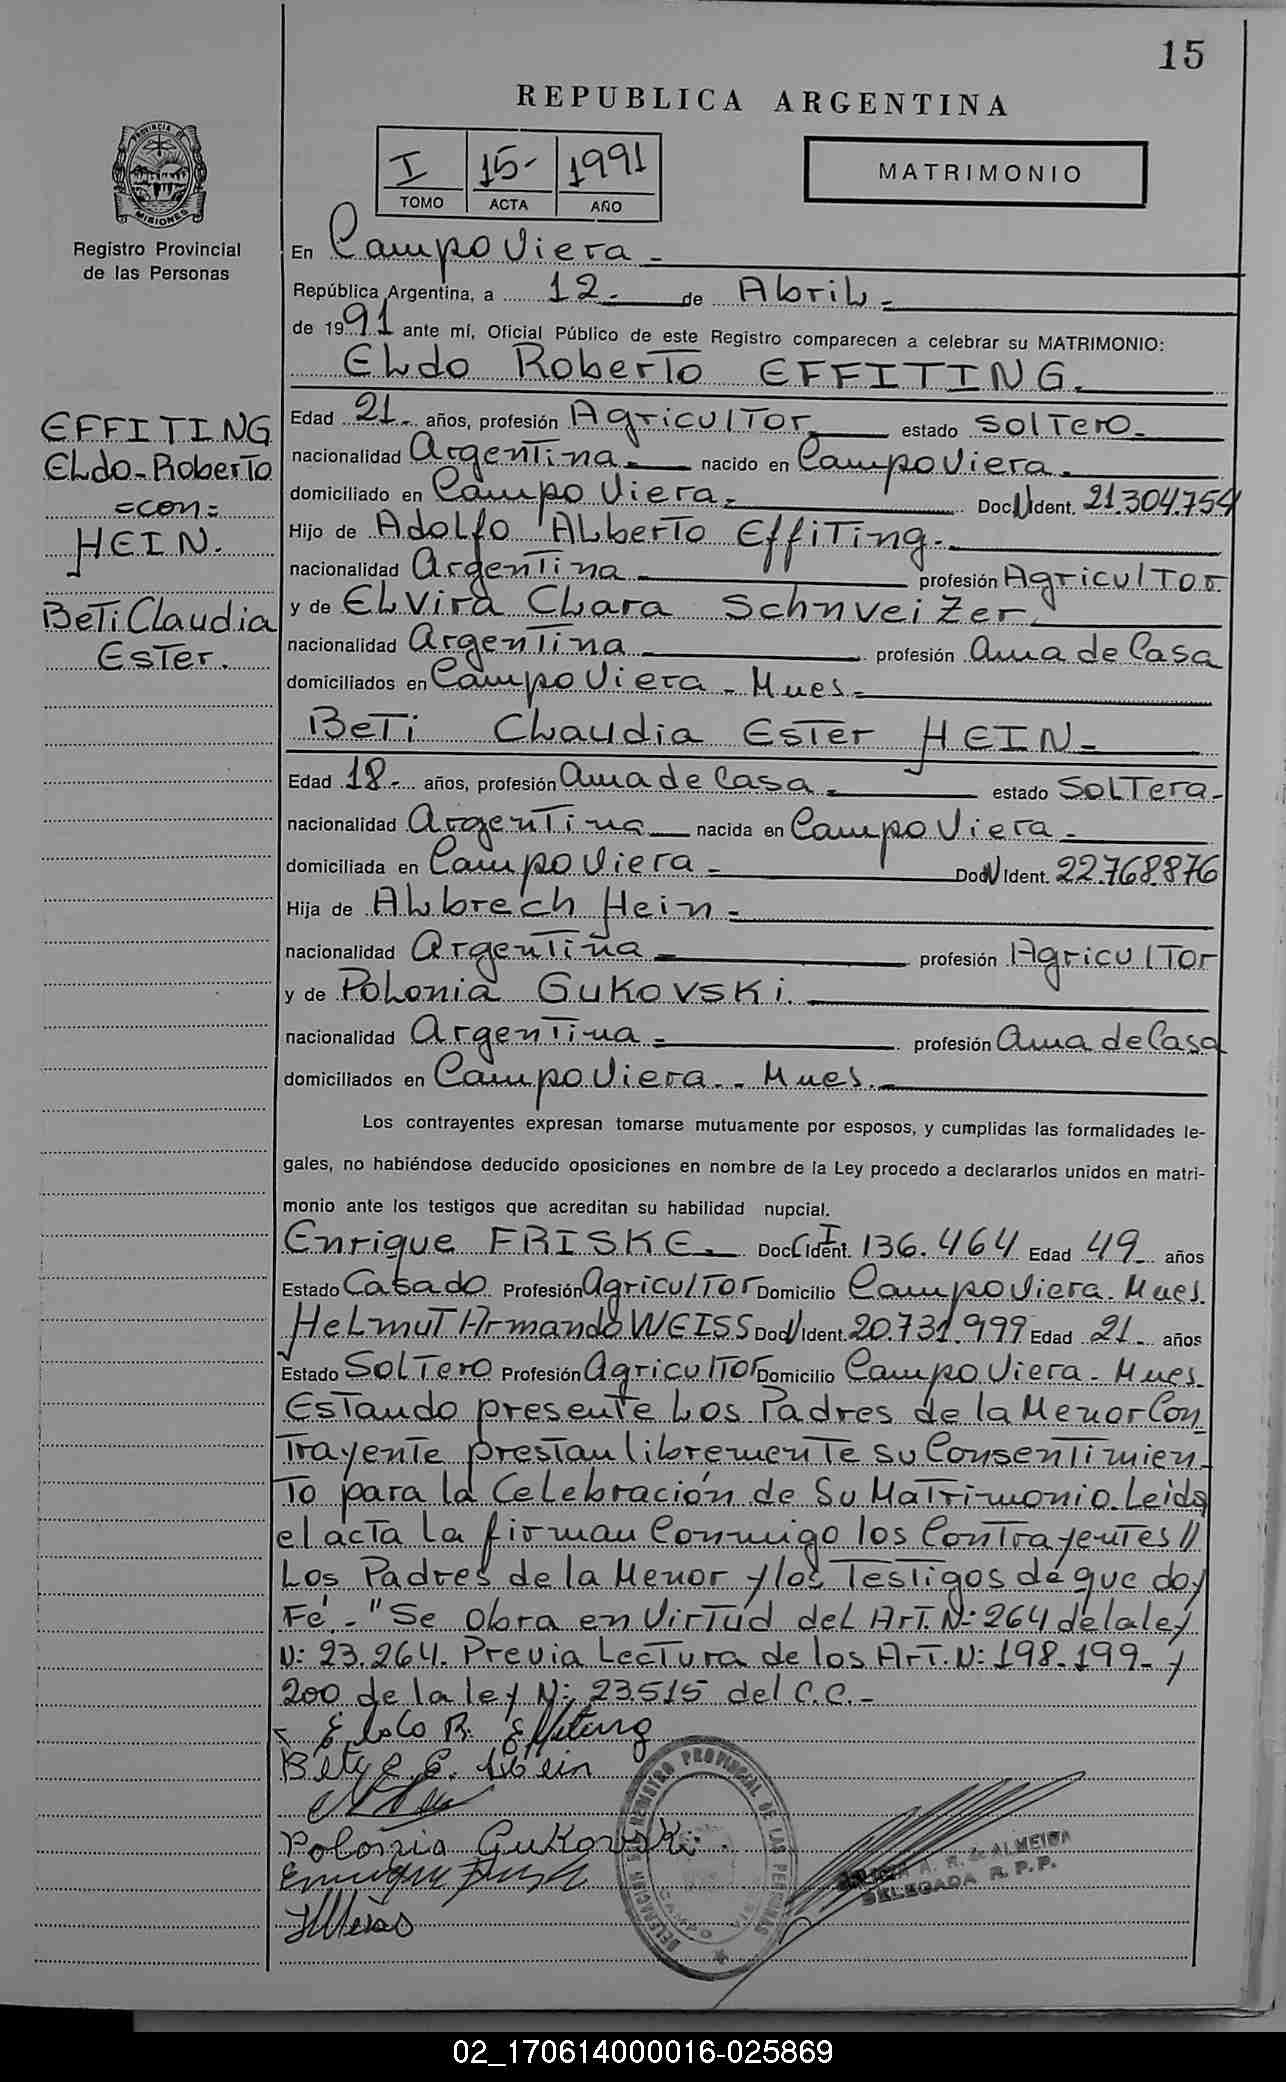 15
REPUBLICA ARGENTINA
PROVINCIA DE
MISIONES
Registro Provincial
de las Personas
I 15- 1991
TOMO ACTA AÑO
MATRIMONIO
En Campo Viera -
República Argentina, a 12- de Abril -
de 1991 ante mí, Oficial Público de este Registro comparecen a celebrar su MATRIMONIO:
ELdo RoberTo EFFITING.
EFFITING
ELdo-RoberTo
=con=
HEIN.
BeTi Claudia
EsTer.
Edad 21- años, profesión AgriculTor estado SolTero-
nacionalidad ArgenTina- nacido en Campo Viera-
domiciliado en Campo Viera- Doc. N Ident. 21.304.754
Hijo de AdoLfo ALberTo EffiTing-
nacionalidad ArgenTina profesión AgriculTor
y de ELvira CLara SchnveiZer.
nacionalidad ArgenTina profesión Ama de Casa
domiciliados en Campo Viera - Mnes-
BeTi CLaudia EsTer HEIN-
Edad 18- años, profesión Ama de Casa- estado SoLTera-
nacionalidad ArgenTina nacida en Campo Viera-
domiciliada en Campo Viera- Doc. N Ident. 22.768.876
Hija de ALbrech Hein-
nacionalidad ArgenTina- profesión AgriculTor
y de PoLonia GuKovsKi.
nacionalidad ArgenTina- profesión Ama de Casa
domiciliados en Campo Viera-- Mnes.-
Los contrayentes expresan tomarse mutuamente por esposos, y cumplidas las formalidades le-
gales, no habiéndose deducido oposiciones en nombre de la Ley procedo a declararlos unidos en matri-
monio ante los testigos que acreditan su habilidad nupcial.
Enrique FRISKE- Doc. C I Ident. 136.464 Edad 49- años
Estado Casado Profesión AgriculTor Domicilio Campo Viera. Mnes.
HeLmuT Armando WEISS Doc. N Ident. 20.731.999 Edad 21- años
Estado SolTero Profesión AgriculTor Domicilio Campo Viera- Mnes.
EsTando presenTe Los Padres de la Menor Con
TrayenTe presTan libremenTe su ConsenTimien-
To para la CeLebración de Su MaTrimonio. Leida
el acTa La firman Conmigo los ConTrayenTes //
Los Padres de la Menor y los TesTigos de que doy
Fé.- "Se Obra en VirTud del ArT. N: 264 de la ley
N: 23.264. Previa LecTura de los ArT. N: 198-199- y
200 de la ley N: 23515 del C.C.-
Eldo R. Effiting
Polonia GuKovsKi.
DELEGACION DEL REGISTRO PROVINCIAL DE LAS PERSONAS
CAMPO VIERA
A. R. de ALMEIDA
DELEGADA R. P. P.
02_170614000016-025869